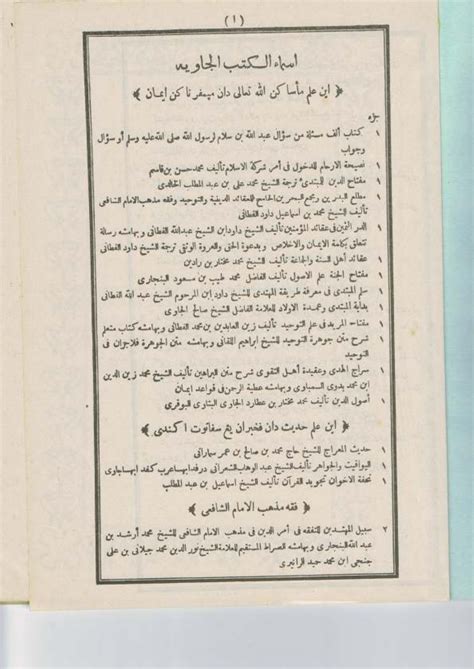 (١)
اسماء الكتب الجاويه
﴿ اين علم مأساكن الله تعالى دان ميمفرناكن ايمان ﴾
جزء
١ كتاب ألف مسئلة من سؤال عبد الله بن سلام لرسول الله صلى الله عليه وسلم أو سؤال
وجواب
١ نصيحة الارحام للدخول فى أمر شركة الاسلام تأليف محمد حسن بن قاسم
١ مفتاح الدين للمبتدى ترجمة للشيخ محمد على بن عبد المطلب الخالدى
١ مطلع البدرين ومجمع البحرين الجامع للعقائد الدينية والتوحيد وفقه مذهب الامام الشافعى
تأليف الشيخ محمد بن اسماعيل داود الفطانى
١ الدر الثمين فى عقائد المؤمنين تأليف الشيخ داود ابن الشيخ عبد الله الفطانى وبهامشه رسالة
تتعلق بكلمة الايمان والاخلاص وبدعوة الحق والعروة الوثقى ترجمة شيخ داود الفطانى
١ عقائد أهل السنة والجماعة تأليف الشيخ محمد مختار بن رادين
١ مفتاح الجنة علم الاصول تأليف الفاضل محمد طيب بن مسعود البنجارى
١ سلم المبتدى فى معرفة طريقة المهتدى للشيخ داود ابن المرحوم الشيخ عبد الله الفطانى
١ بداية المبتدى وعمدة الاولاد للعلامة الفاضل الشيخ صالح الجاوى
١ مفتاح المريد فى علم التوحيد تأليف زين العابدين بن محمد الفطانى وبهامشه كتاب متعلم
١ شرح متن جوهرة التوحيد للشيخ ابراهيم اللقانى وبهامشه متن الجوهرة فلاجوان فى
التوحيد
١ سراج الهدى وعقيدة أهل التقوى شرح متن البراهين تأليف الشيخ محمد زين الدين
ابن محمد بدوى السمباوى وبهامشه عطية الرحمن فى قواعد ايمان
١ أصول الدين تأليف محمد مختار بن عطارد الجاوى البتاوى البوقرى
﴿ اين علم حديث دان فخبران يغ سفاتوت اكندى ﴾
١ حديث المعراج للشيخ حاج محمد بن صالح بن عمر سمارانى
١ اليواقيت والجواهر تأليف الشيخ عبد الوهاب الشعرانى
١ تحفة الاخوان تجويد القرآن تأليف الشيخ اسماعيل بن عبد المطلب
﴿ فقه مذهب الامام الشافعى ﴾
٢ سبيل المهتدين للتفقه فى أمر الدين فى مذهب الامام الشافعى للشيخ محمد أرشد بن
عبد الله البنجارى وبهامشه الصراط المستقيم للعلامة الشيخ نور الدين محمد جيلانى بن على
ابن محمد حميد الرانيرى